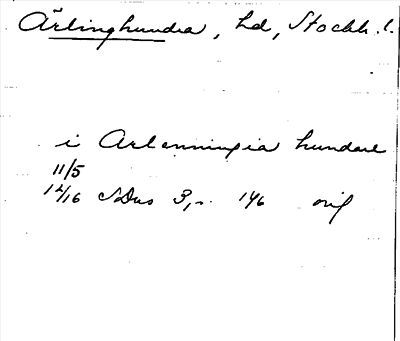 Ärlinghundra, hd, Stockh. l.
i Arlenningia hundare
11/5
1416 SDns 3, s. 146 orig